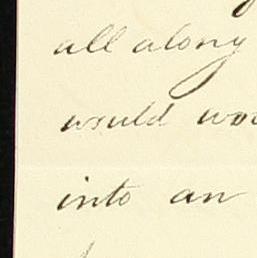 all along
would
into an